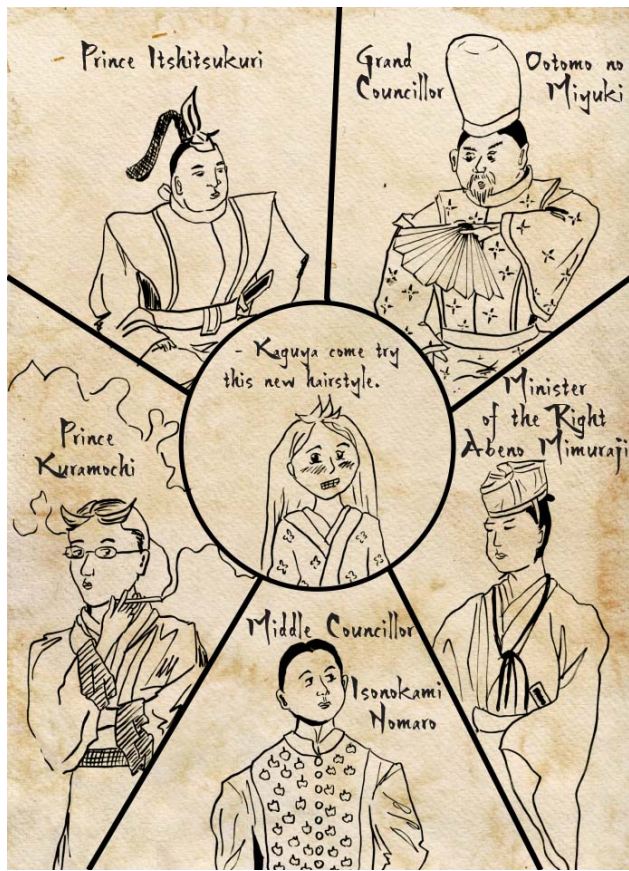 Prince Itshitsukuri
Grand
Councillor
Ootomo no
Miyuki
- Kaguya come try
this new hairstyle.
Prince
Kuramochi
Minister
of the Right
Abeno Mimuraji
Middle Councillor
Isonokami
Nomaro